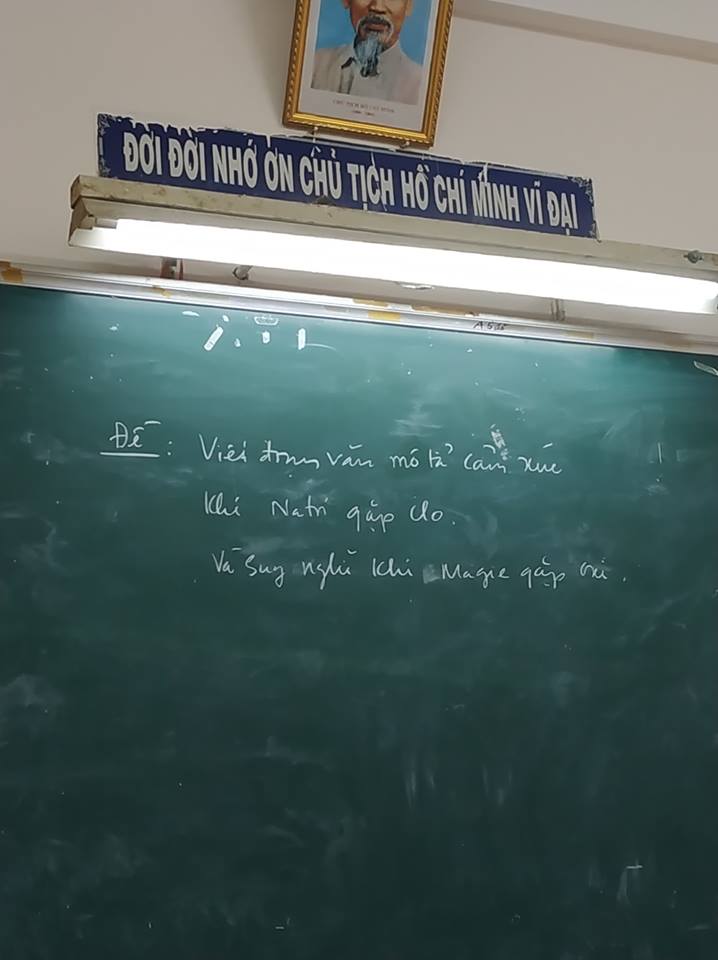 CHỦ TỊCH HỒ CHÍ MINH
ĐỜI ĐỜI NHỚ ƠN CHỦ TỊCH HỒ CHÍ MINH VĨ ĐẠI
Đề: Viết đoạn văn mô tả cảm xúc
khi Natri gặp clo.
Và suy nghĩ khi Magie gặp oxi.